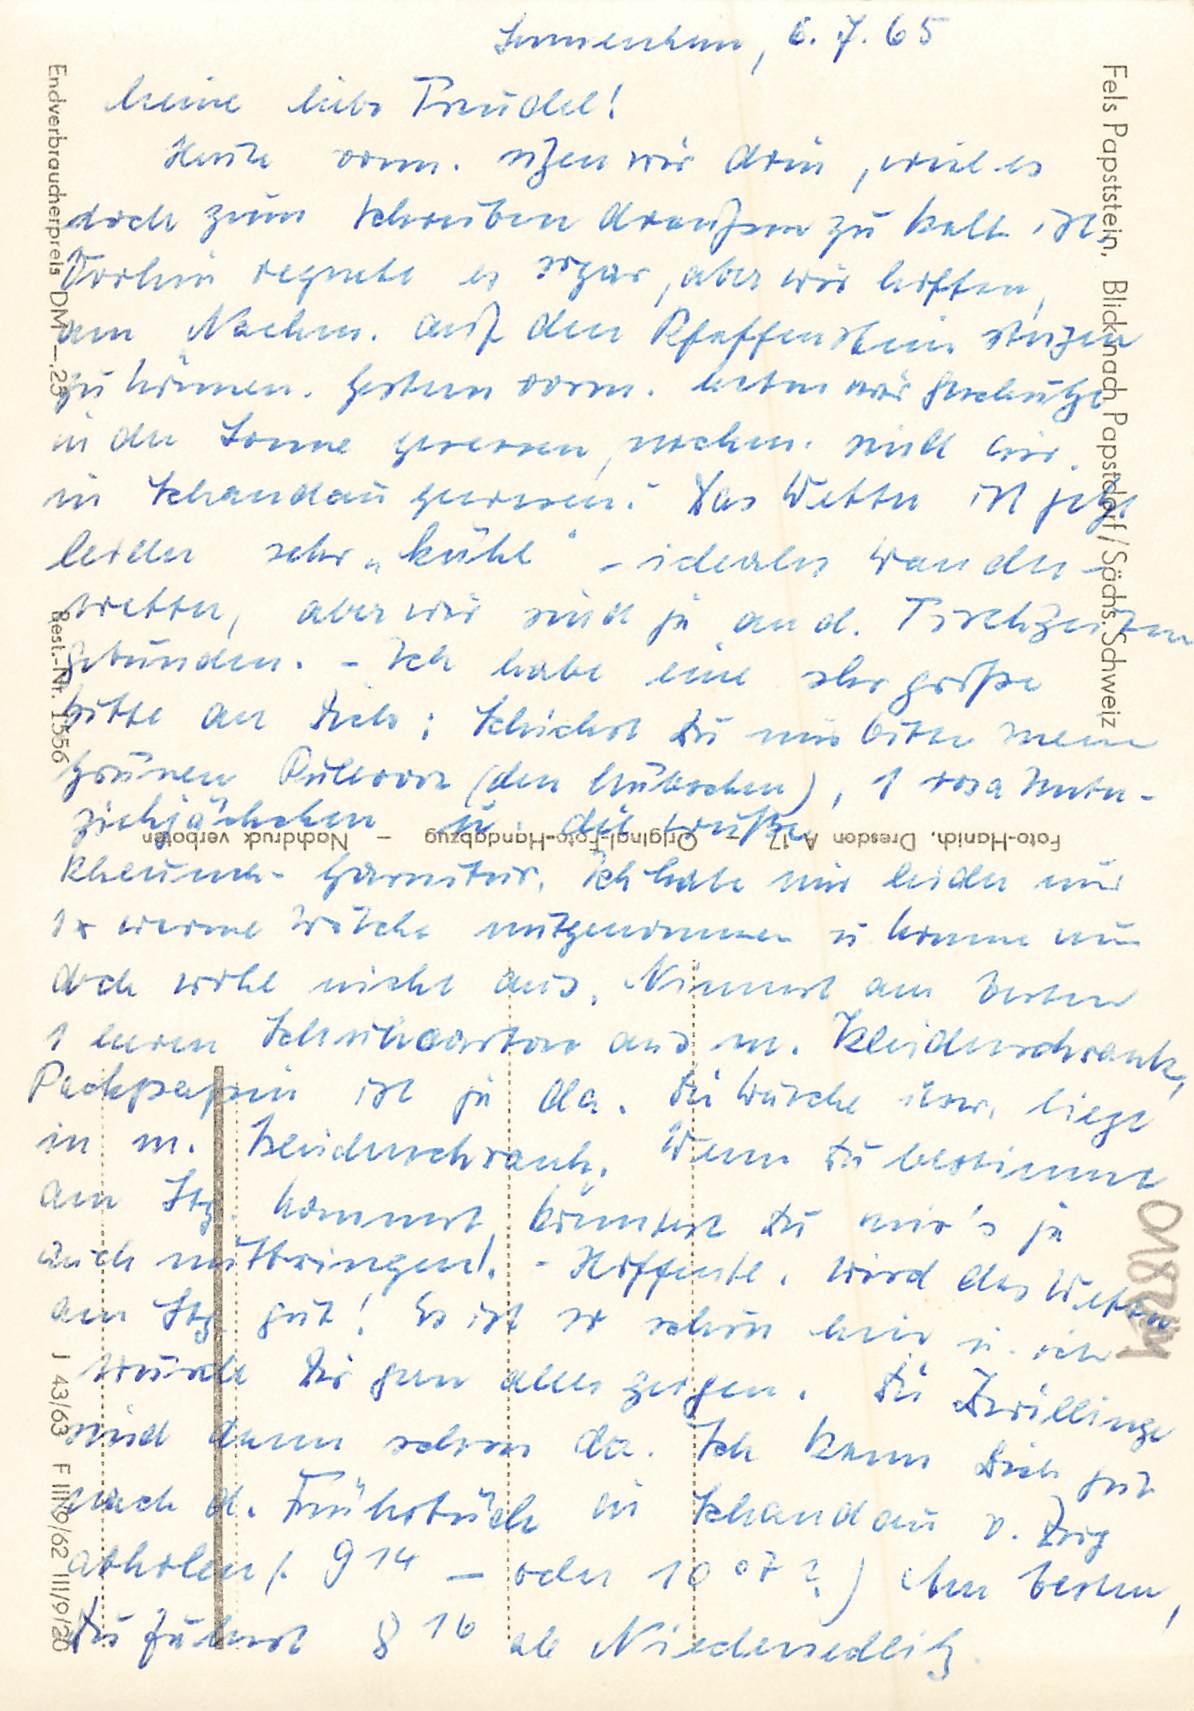 6.7.65
Meine liebe Traudel!
Heute vorm. sitzen wir drin, weil es
doch zum Schreiben draußen zu kalt ist.
Vorhin regnete es sogar, aber wir hoffen,
am Nachm. auf den Pfaffenstein steigen
zu können. Gestern vorm. haben wir geschützt
in der Sonne gesessen, nachm. sind wir
in Schandau gewesen. Das Wetter ist jetzt
leider sehr „kühl" - ideales Wander-
wetter, aber wir sind ja an d. Tischzeiten
gebunden. - Ich habe eine sehr große
Bitte an Dich: Schickst Du mir bitte meinen
grünen Pullover (den hübschen), 1 rosa Unter-
ziehjäckchen u. die
Rheuma-Garnitur. Ich habe mir leider nur
1x warme Wäsche mitgenommen u. komme nun
doch wohl nicht aus. Nimmst am besten
1 leeren Schuhcarton aus m. Kleiderschrank,
Packpapier ist ja da. Die Wäsche usw. liegt
in m. Kleiderschrank. Wenn Du bestimmt
am Stg. kommst, könntest Du mir's ja
auch mitbringen. - Hoffentl. wird das Wetter
am Stg. gut! Es ist so schön hier u. ich
würde Dir gern alles zeigen. Die Zwillinge
sind dann schon da. Ich kann Dich gut
nach d. Frühstück in Schandau v. Zug
abholen (. 9 14 - oder 10 07?) Am besten,
Du fährst 8 16 ab Niedersedlitz.
Fels Papststein, Blick nach Papstdorf/Sächs. Schweiz
Endverbraucherpreis DM -,25
Best.-Nr. 1556
J 43/63 F III/9/62 III/9/20
Foto-Hanich, Dresden A 17 - Original-Foto-Handabzug - Nachdruck verboten